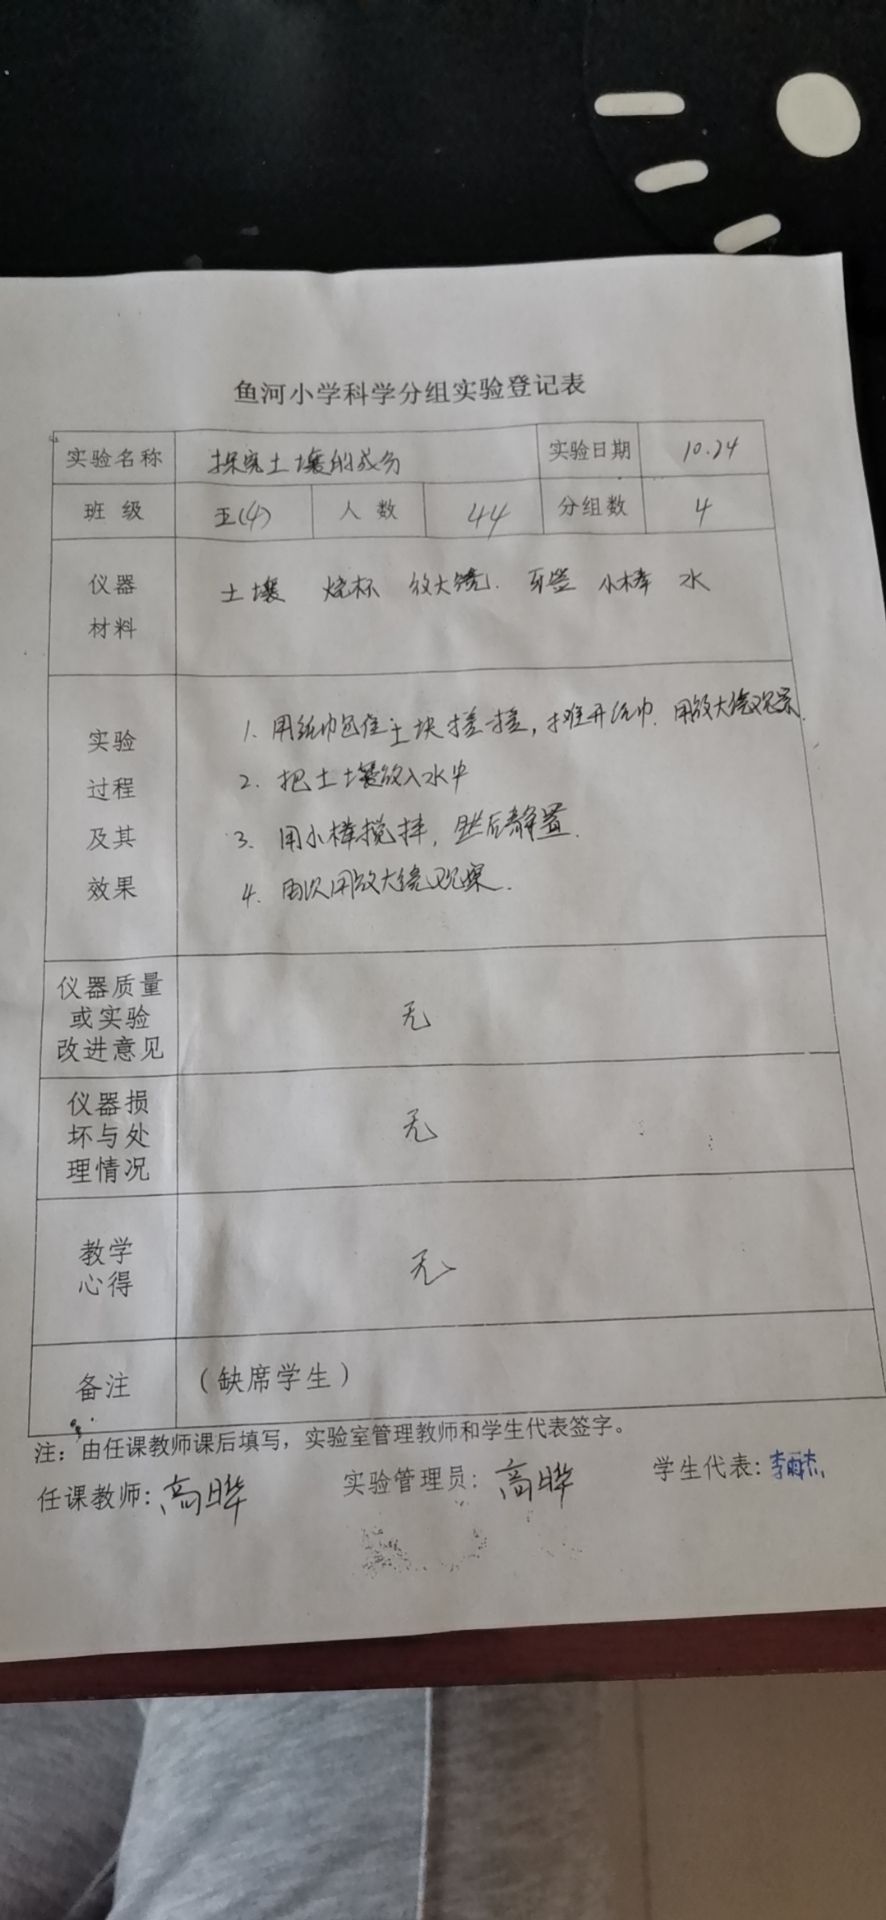 鱼河小学科学分组实验登记表
实验名称 探究土壤的成分 实验日期 10.24
班级 五(4) 人数 44 分组数 4
仪器
材料
土壤 烧杯 放大镜. 牙签 小棒 水
实验
过程
及其
效果
1. 用纸巾包住土块搓一搓，摊开纸巾. 用放大镜观察.
2. 把土土壤放入水中
3. 用小棒搅拌，然后静置.
4. 再次用放大镜观察.
仪器质量
或实验
改进意见
无
仪器损
坏与处
理情况
无
教学
心得
无
备注 （缺席学生）
注：由任课教师课后填写，实验室管理教师和学生代表签字。
任课教师：高晔 实验管理员：高晔 学生代表：李